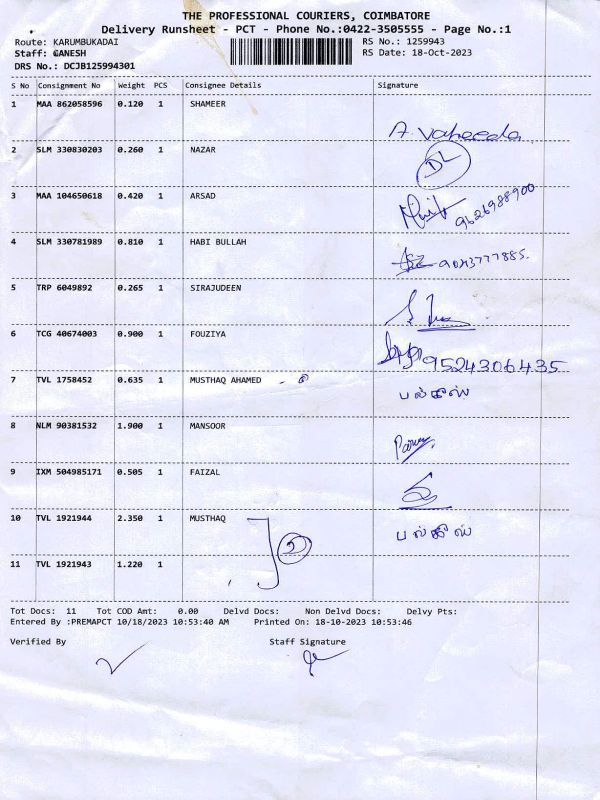 THE PROFESSIONAL COURIERS, COIMBATORE
Delivery Runsheet - PCT - Phone No.:0422-3505555 - Page No.:1
Route: KARUMBUKADAI RS No.: 1259943
Staff: GANESH RS Date: 18-Oct-2023
DRS No.: DCJB125994301
S No Consignment No Weight PCS Consignee Details Signature
1 MAA 862058596 0.120 1 SHAMEER A. Vaheeda
2 SLM 330830203 0.260 1 NAZAR DL
3 MAA 104650618 0.420 1 ARSAD 9626988900
4 SLM 330781989 0.810 1 HABI BULLAH
5 TRP 6049892 0.265 1 SIRAJUDEEN
6 TCG 40674003 0.900 1 FOUZIYA 9524306435
7 TVL 1758452 0.635 1 MUSTHAQ AHAMED பல்கீஸ்
8 NLM 90381532 1.900 1 MANSOOR
9 IXM 504985171 0.505 1 FAIZAL
10 TVL 1921944 2.350 1 MUSTHAQ பல்கீஸ்
11 TVL 1921943 1.220 1
Tot Docs: 11 Tot COD Amt: 0.00 Delvd Docs: Non Delvd Docs: Delvy Pts:
Entered By :PREMAPCT 10/18/2023 10:53:40 AM Printed On: 18-10-2023 10:53:46
Verified By Staff Signature